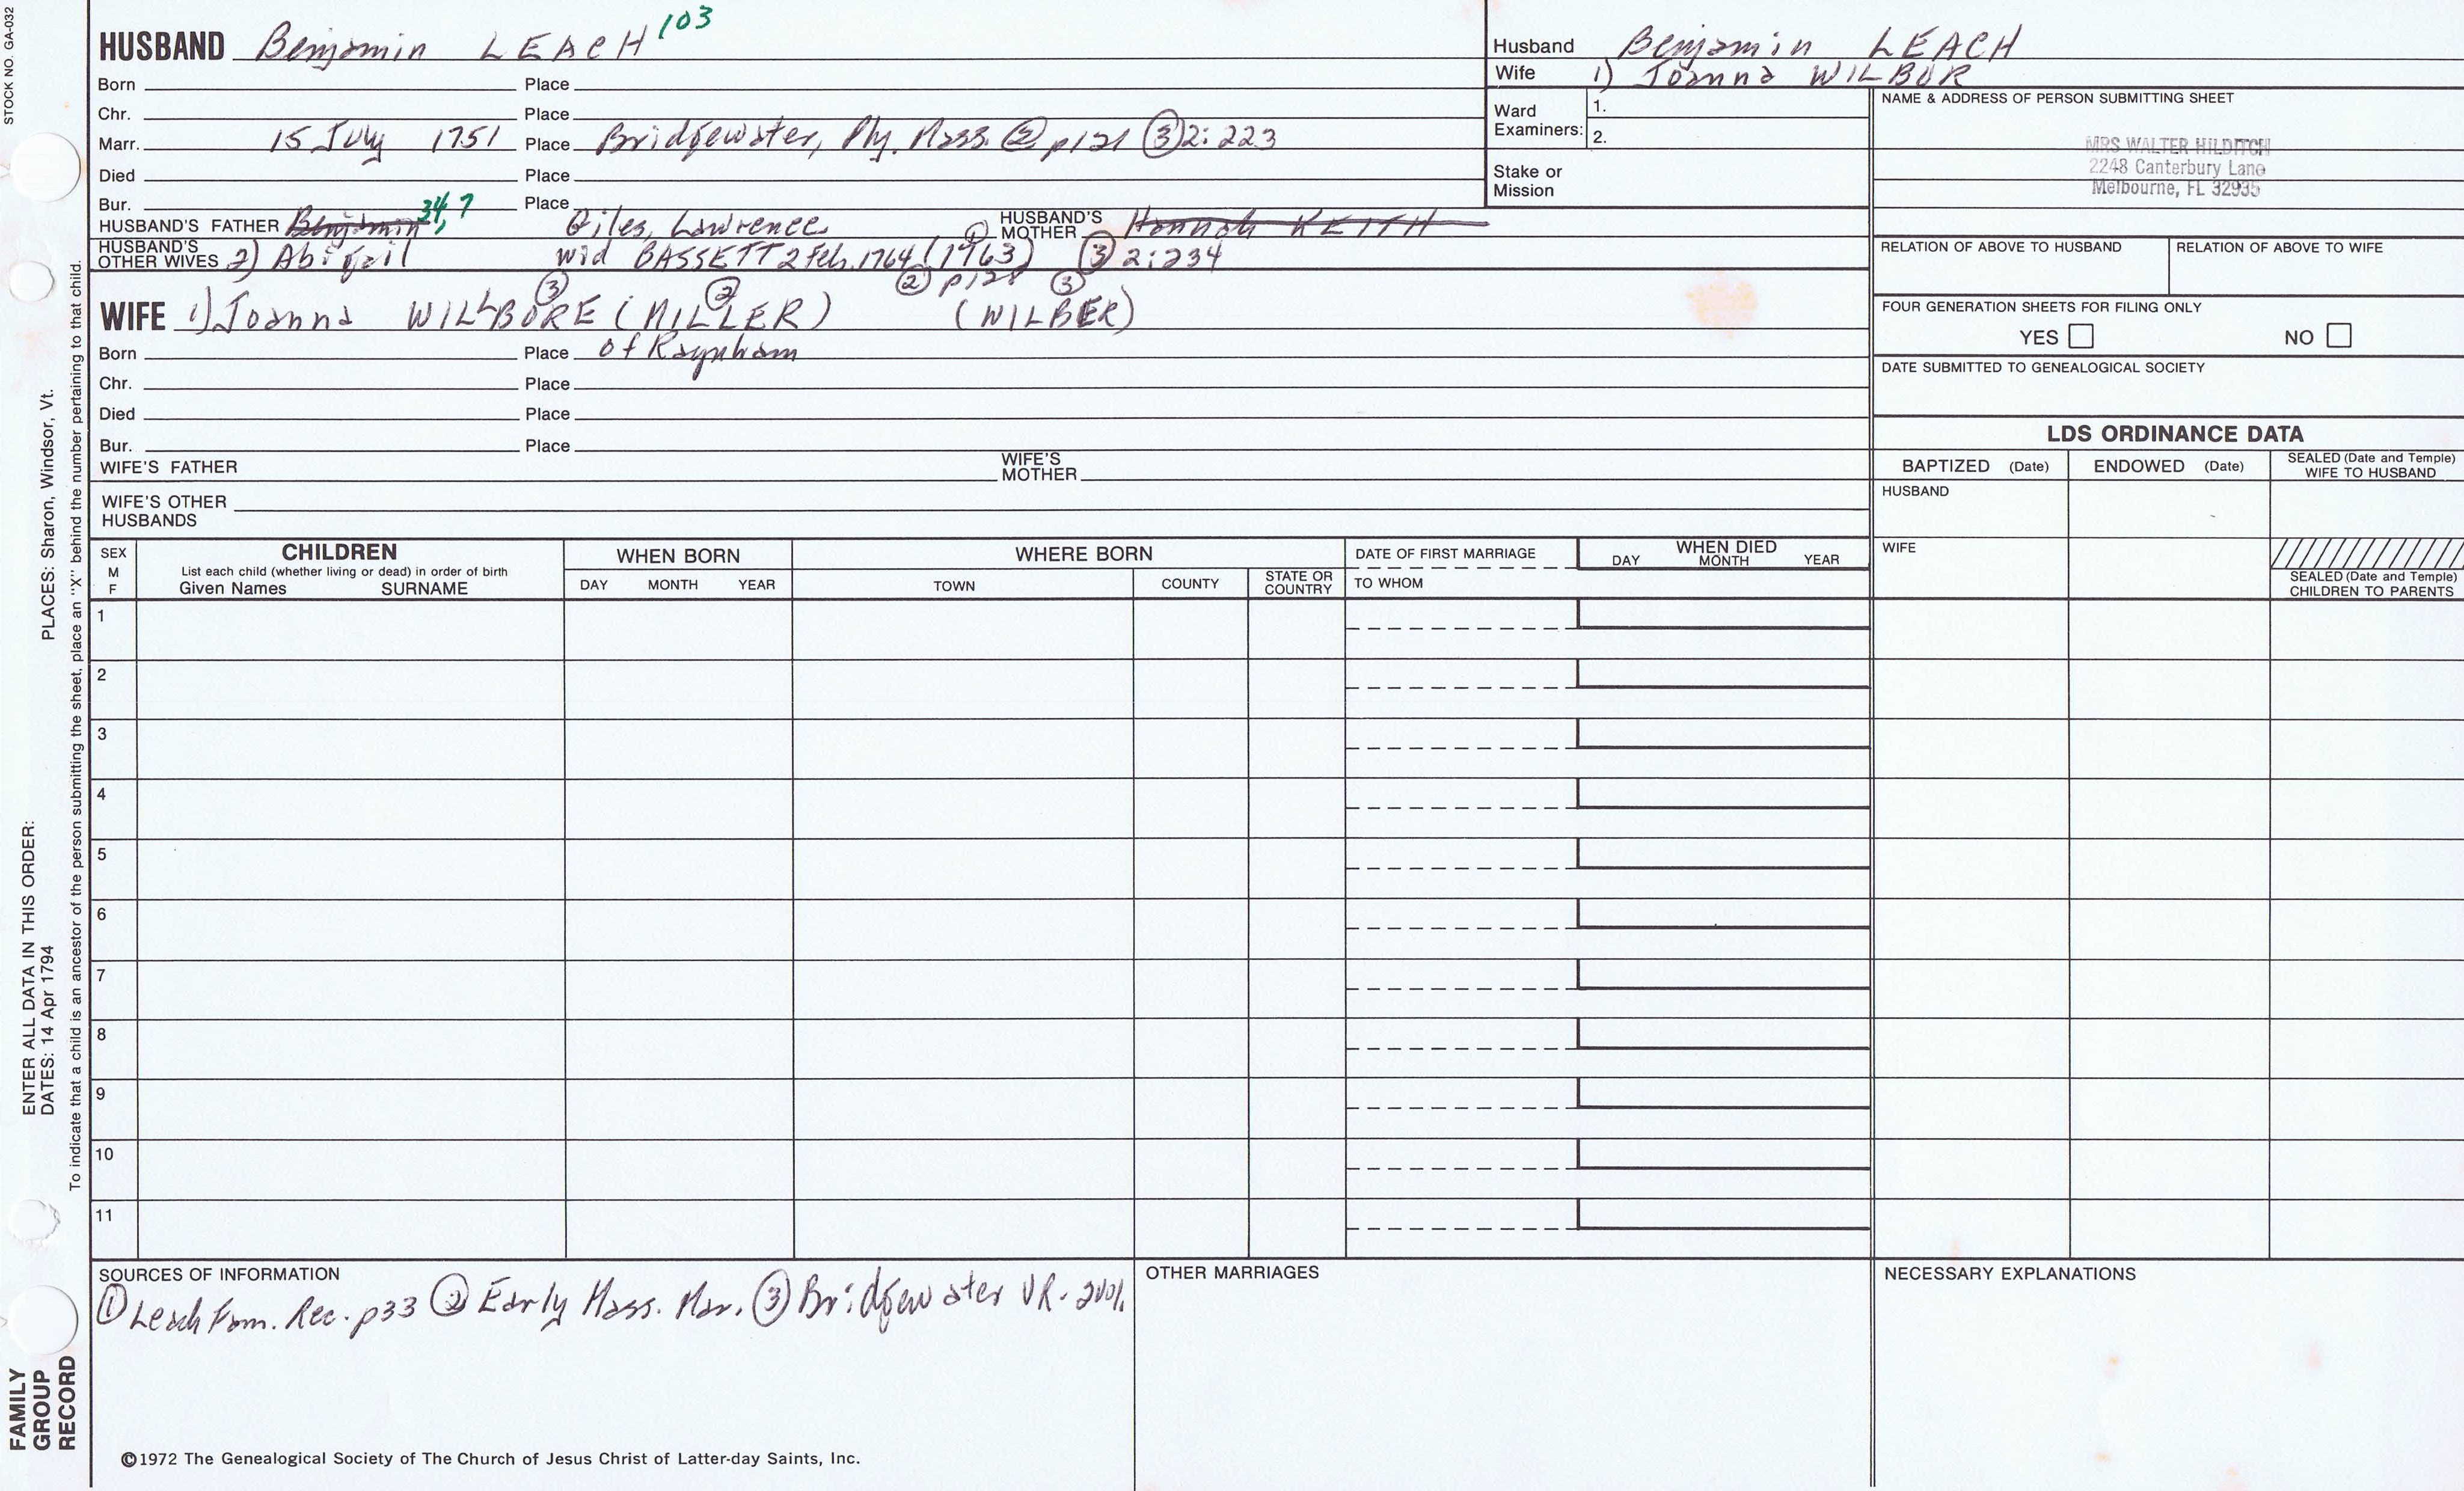 STOCK NO. GA-032
HUSBAND Benjamin LEACH 103
Born Place
Chr. Place
Marr. 15 July 1751 Place Bridgewater, Ply. Mass. ② p121 ③ 2:223
Died Place
Bur. Place
HUSBAND'S FATHER Benjamin 34, ? Giles, Lawrence ① HUSBAND'S MOTHER Hannah KEITH
HUSBAND'S OTHER WIVES 2) Abigail wid BASSETT 2 Feb. 1764 (1963) ③ 2:234
② p128
WIFE 1) Joanna WILLBORE ③ (MILLER) ② (WILBER) ③
Born Place of Raynham
Chr. Place
Died Place
Bur. Place
WIFE'S FATHER WIFE'S MOTHER
WIFE'S OTHER HUSBANDS
Husband Benjamin LEACH
Wife 1) Joanna WILBOR
Ward Examiners: 1.
2.
Stake or Mission
NAME & ADDRESS OF PERSON SUBMITTING SHEET
MRS WALTER HILDITCH
2248 Canterbury Lane
Melbourne, FL 32935
RELATION OF ABOVE TO HUSBAND RELATION OF ABOVE TO WIFE
FOUR GENERATION SHEETS FOR FILING ONLY
YES NO
DATE SUBMITTED TO GENEALOGICAL SOCIETY
LDS ORDINANCE DATA
BAPTIZED (Date) ENDOWED (Date) SEALED (Date and Temple) WIFE TO HUSBAND
HUSBAND
WIFE
SEALED (Date and Temple) CHILDREN TO PARENTS
SEX M F
CHILDREN
List each child (whether living or dead) in order of birth
Given Names SURNAME
WHEN BORN
DAY MONTH YEAR
WHERE BORN
TOWN COUNTY STATE OR COUNTRY
DATE OF FIRST MARRIAGE
TO WHOM
WHEN DIED
DAY MONTH YEAR
1
2
3
4
5
6
7
8
9
10
11
SOURCES OF INFORMATION
① Leach Fam. Rec. p33 ② Early Mass. Mar. ③ Bridgewater VR-2vol.
OTHER MARRIAGES
NECESSARY EXPLANATIONS
©1972 The Genealogical Society of The Church of Jesus Christ of Latter-day Saints, Inc.
FAMILY GROUP RECORD
ENTER ALL DATA IN THIS ORDER:
DATES: 14 Apr 1794 PLACES: Sharon, Windsor, Vt.
To indicate that a child is an ancestor of the person submitting the sheet, place an "X" behind the number pertaining to that child.